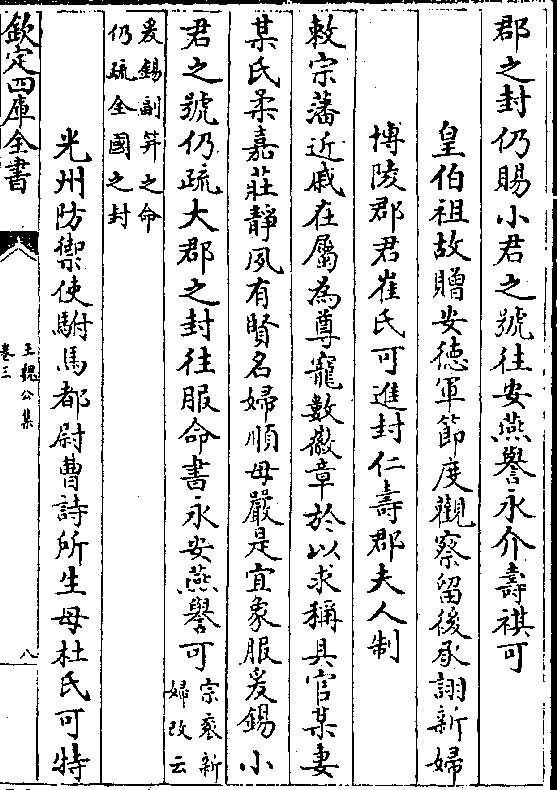 郡之封仍賜小君之號往安燕譽永介壽祺可
皇伯祖故贈安德軍節度觀察留後承詡新婦
博陵郡君崔氏可進封仁壽郡夫人制
敕宗藩近戚在屬為尊寵數徽章於以求稱具官某妻
某氏柔嘉莊靜夙有賢名婦順母嚴是宜象服爰錫小
君之號仍疏大郡之封往服命書永安燕譽可
宗袞新
婦改云
爰錫副笄之命
仍疏全國之封
光州防禦使駙馬都尉曹詩所生母杜氏可特
欽定四庫全書
王魏公集
卷三
八